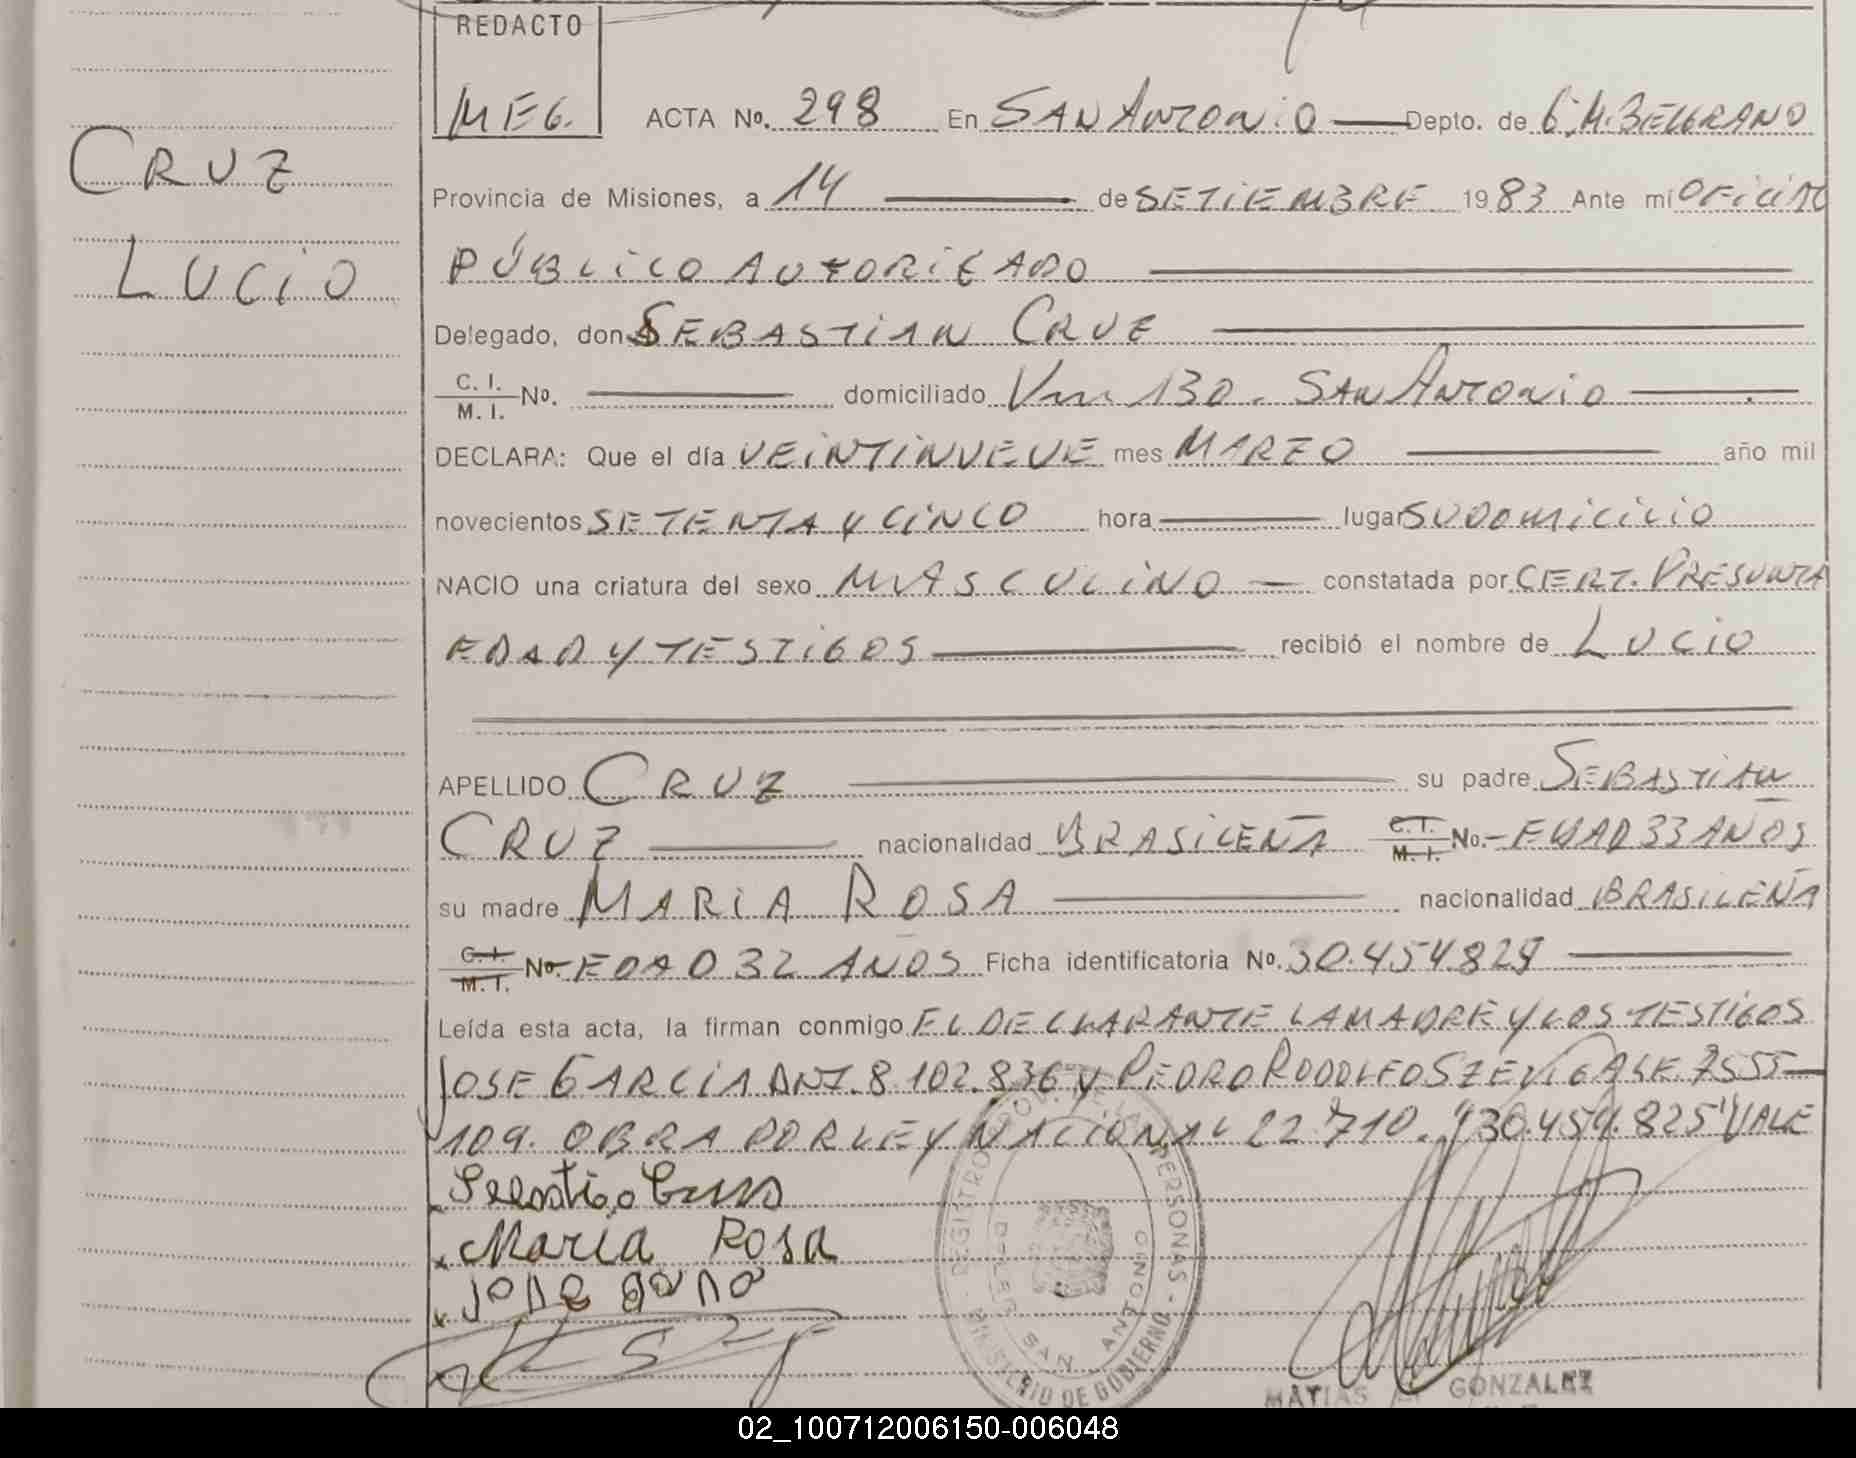 REDACTO
MEG.
CRUZ
LUCIO
ACTA No. 298 En SAN ANTONIO Depto. de G.M. BELGRANO
Provincia de Misiones, a 14 de SETIEMBRE 1983 Ante mí OFICIAL
PÚBLICO AUTORIZADO
Delegado, don SEBASTIAN CRUZ
C. I. / M. I. No. domiciliado Km 130. SAN ANTONIO
DECLARA: Que el día VEINTINUEVE mes MARZO año mil
novecientos SETENTA Y CINCO hora lugar SU DOMICILIO
NACIO una criatura del sexo MASCULINO constatada por CERT. PRESUNTA
EDAD Y TESTIGOS recibió el nombre de LUCIO
APELLIDO CRUZ su padre SEBASTIAN
CRUZ nacionalidad BRASILEÑA C. I. / M. I. No. EDAD 33 AÑOS
su madre MARIA ROSA nacionalidad BRASILEÑA
C. I. / M. I. No. EDAD 32 AÑOS Ficha identificatoria No. 30.454.829
Leída esta acta, la firman conmigo EL DECLARANTE LA MADRE Y LOS TESTIGOS
JOSE GARCIA DNI. 8.102.836 Y PEDRO RODOLFO 7555
109. OBRA POR LEY NACIONAL 22.710. "30.454.825" VALE
Maria Rosa
REGISTRO PERSONAS - MINISTERIO DE GOBIERNO
SAN ANTONIO
MATIAS GONZALEZ
02_100712006150-006048